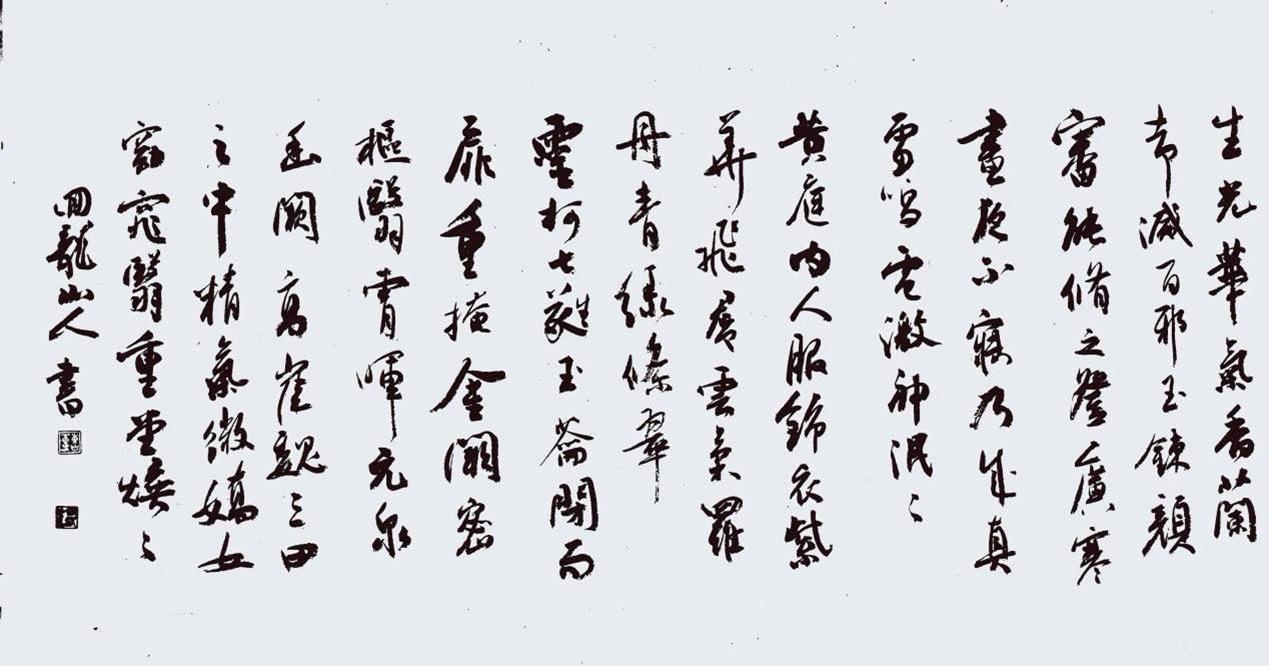 生光華氣香蘭
却滅百邪玉鍊顏
審能脩之登廣寒
晝夜不寐乃成真
雷鳴電激神泯〻
黃庭內人服錦衣紫
華飛裙雲氣羅
丹青綠條翠
靈柯七蕤玉籥閉兩
扉重掩金關密
樞翳霄暉元泉
幽闕高崔巍三田
之中精氣微嬌女
窈窕翳重堂煥〻
回龍山人書